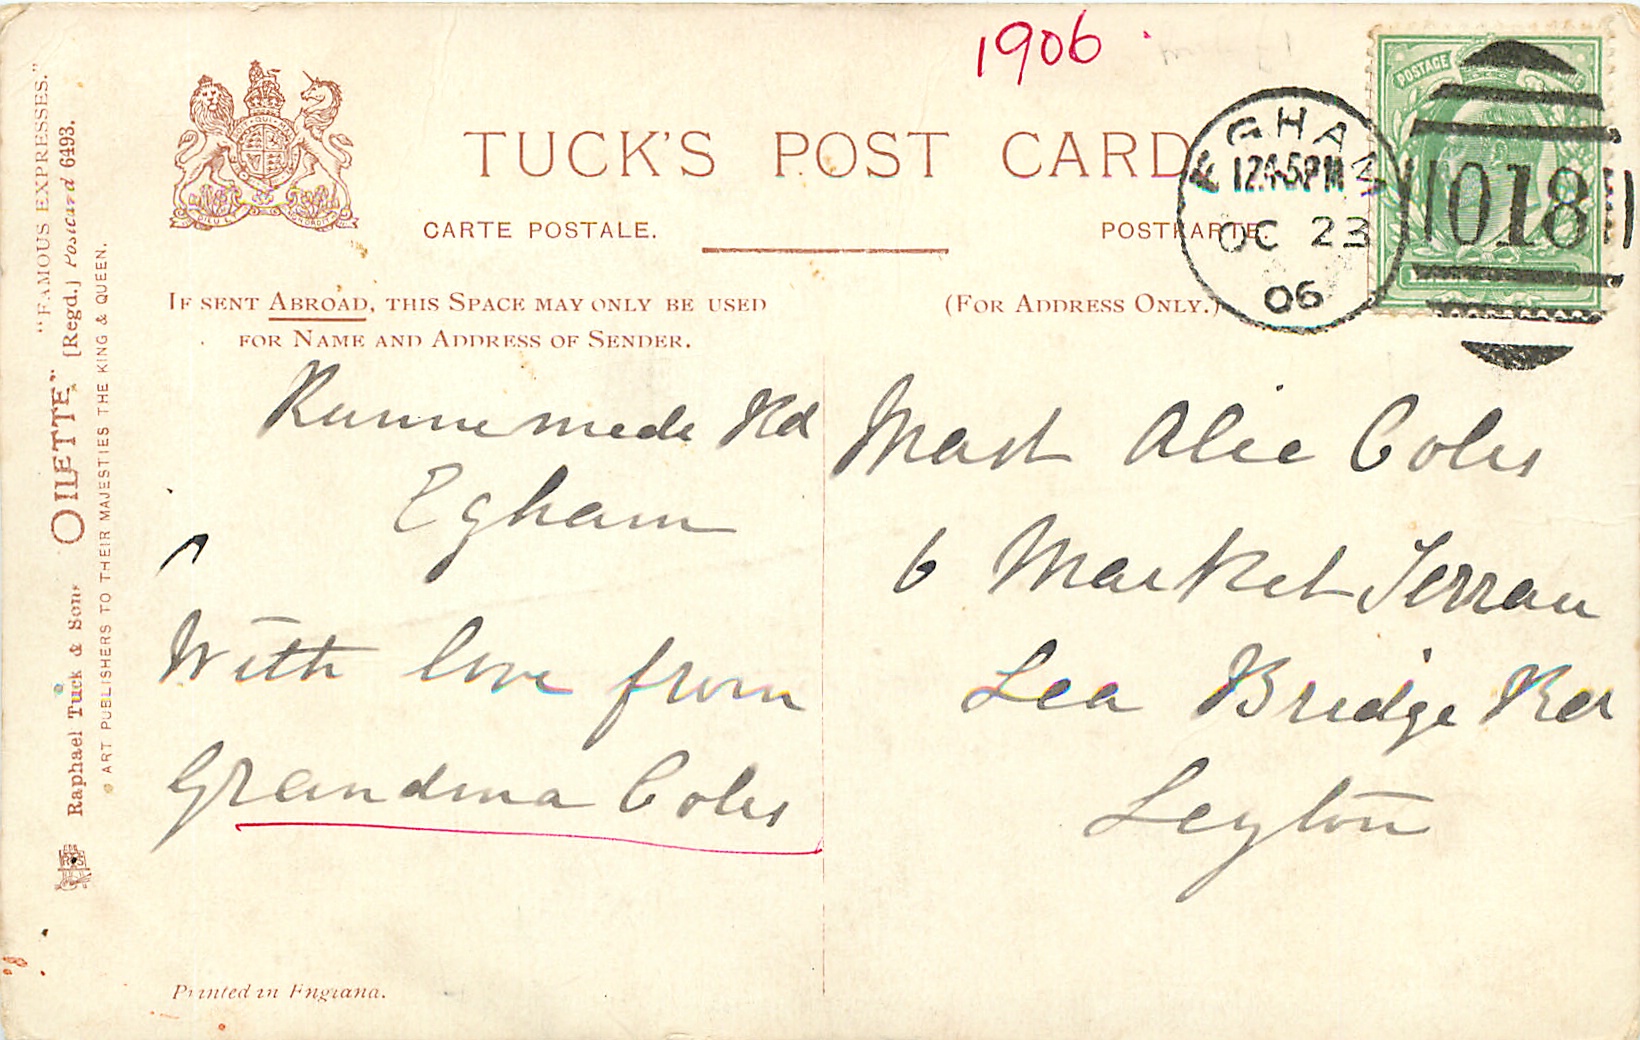 1906
TUCK'S POST CARD
CARTE POSTALE.
POSTKARTE.
IF SENT ABROAD, THIS SPACE MAY ONLY BE USED
FOR NAME AND ADDRESS OF SENDER.
(FOR ADDRESS ONLY.)
EGHAM
12.45PM
OC 23
06
POSTAGE
018
Runnemede Rd
Egham
With love from
Grandma Coles
Mast Alic Coles
6 Market Terrace
Lea Bridge Rd
Leyton
"FAMOUS EXPRESSES."
Raphael Tuck & Sons "OILETTE" [Regd.] Postcard 6493.
ART PUBLISHERS TO THEIR MAJESTIES THE KING & QUEEN.
Printed in England.